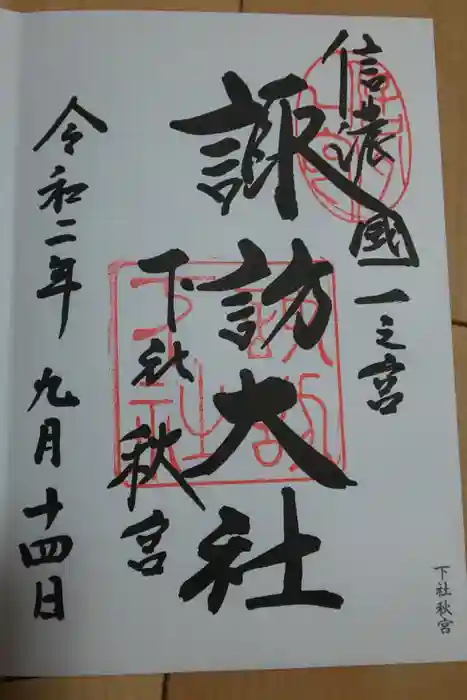 信濃國一之宮
諏訪大社
下社秋宮
令和二年九月十四日
下社秋宮